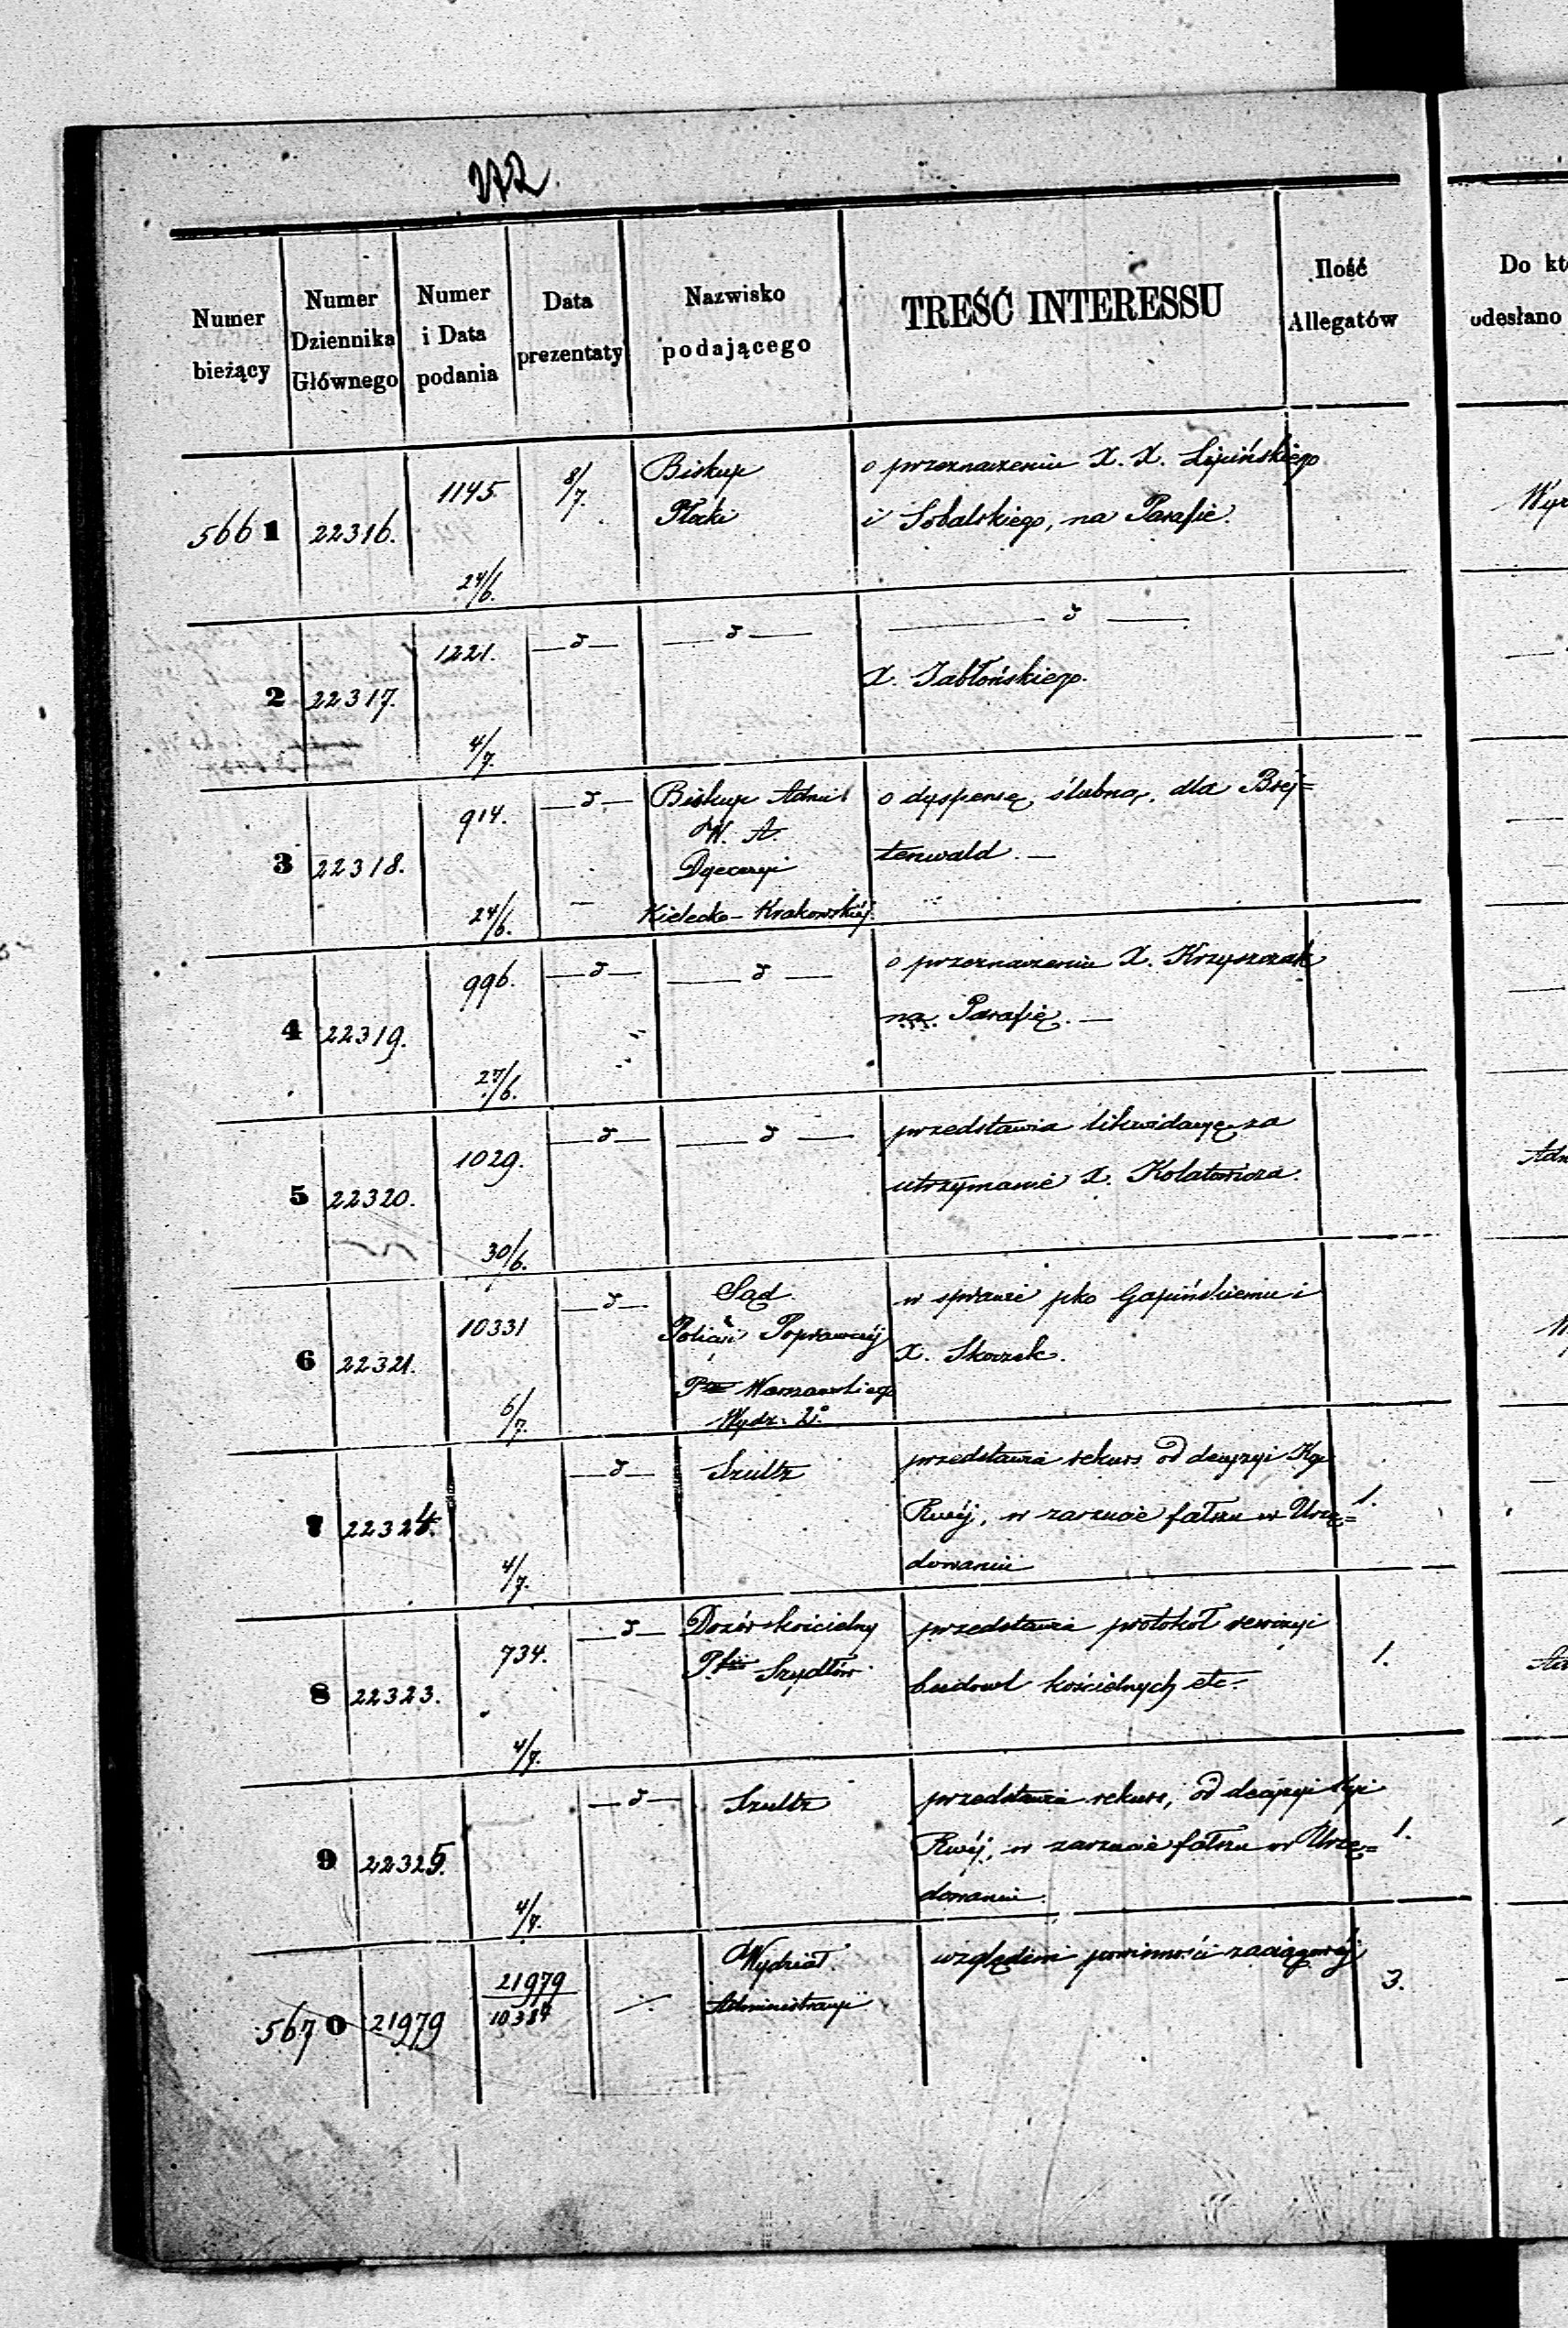 272
Numer bieżący
Numer Dziennika Głównego
Numer i Data podania
Data prezentaty
Nazwisko podającego
TREŚĆ INTERESSU
Ilość Allegatów
Do kt
odesłano
5661 22316. 1145. 24/6. 8/7. Biskup Płocki
o przeznaczeniu X. X. Lipińskiego
i Sobalskiego, na Parafie.
2 22317. 1221. 4/7. —d— —d— —d—
X. Jabłońskiego.
3 22318. 914. 24/6. —d— Biskup Admi
W. A.
Dyecezyi
Kielecko-Krakowskiéj.
o dyspensę ślubną, dla Brej=
tenwald. —
4 22319. 996. 27/6. —d— —d—
o przeznaczeniu X. Krzyszczak
na Parafię. —
5 22320. 1029. 30/6. —d— —d—
przedstawia likwidacyę za
utrzymanie X. Kolatowicza.
6 22321. 10331 6/7. —d— Sąd
Policÿi Poprawczéj
Ptu Warszawskiego
Wydz. 2o
w sprawie pko Gapińskiemu i
X. Skoczek.
7 22324. 4/7. —d— Szultz
przedstawia rekurs od decyzyi
Rwéj, w zarzucie fałszu w Urzę=
dowaniu
1.
8 22323. 734. 4/7. —d— Dozór kościelny
Pfii Szydłów
przedstawia protokoł rewizyi
budowl kościelnych etc.
1.
9 22325. 4/7. —d— Szultz
przedstawia rekurs, od decyzyi
Rwéj, w zarzucie fałszu w Urzę=
dowaniu.
1.
5670 21979 21979
10384
Wydział
Administracyi
względem powinności zaciągowéj
3.